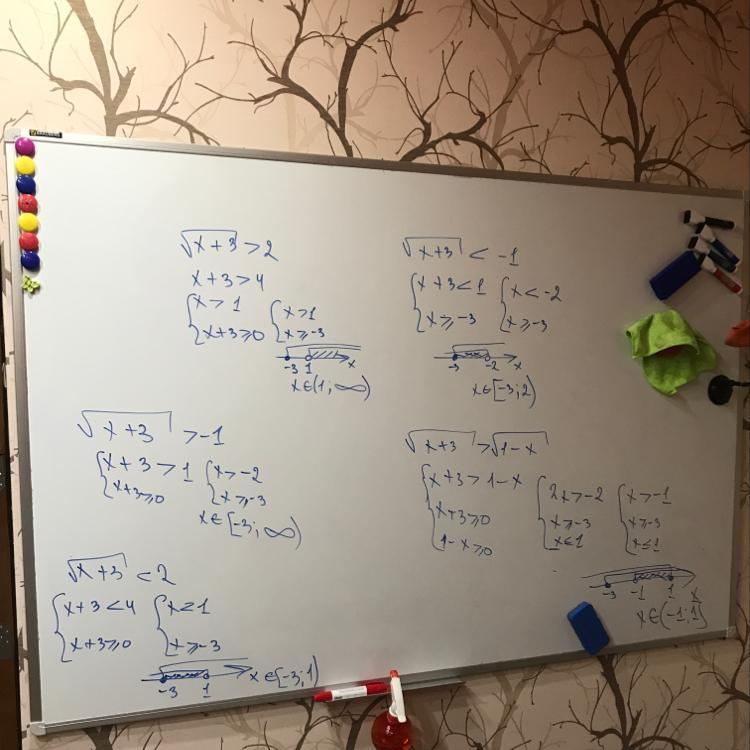 √x+3 > 2
x+3>4
{ x>1
x+3≥0
{ x>1
x≥-3
-3 1 x
x∈(1; ∞)
√x+3 < -1
{ x+3<1
x≥-3
{ x<-2
x≥-3
-3 -2 x
x∈[-3;2)
√x+3 >-1
{ x+3>1
x+3≥0
{ x>-2
x≥-3
x∈[-3; ∞)
√x+3 > √1-x
{ x+3>1-x
x+3≥0
1-x≥0
{ 2x>-2
x≥-3
x≤1
{ x>-1
x≥-3
x≤1
-3 -1 1 x
x∈(-1;1]
√x+3 <2
{ x+3<4
x+3≥0
{ x<1
x≥-3
-3 1
x∈[-3;1)